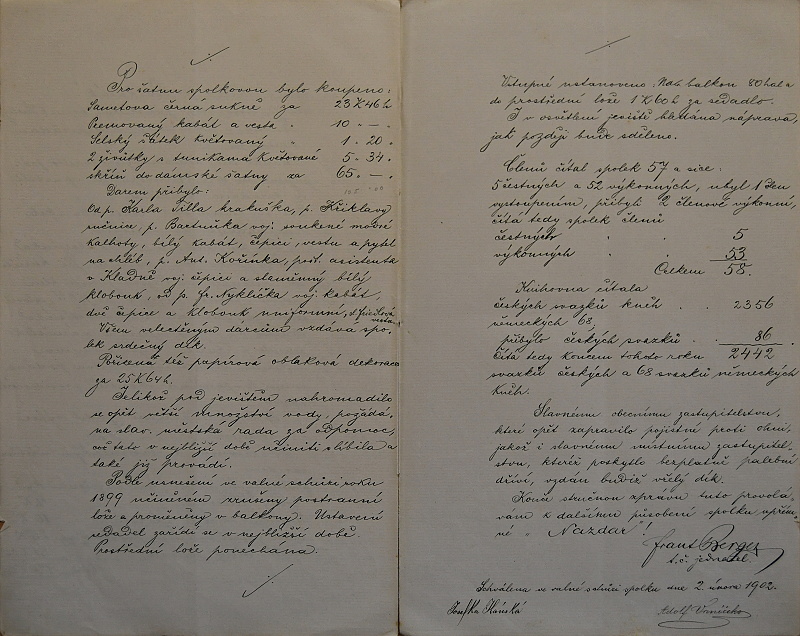 Pro šatnu spolkovou bylo koupeno:
Sametova černá sukně za 23 K 46 h
Premovaný kabát a vesta . 10 " — "
Selský šátek květovaný " 1 " 20 "
2 živůtky s tunikama květované 5 " 34 "
skříň do dámské šatny za 65 " — "
Darem přibylo:
Od p. Karla Tilla krakuška, p. Křiklavy
ručnice, p. Bartuňka voj. soukené modré
kalhoty, bílý kabát, čepici, vestu a pytel
na chléb, p. Ant. Kořínka, pošt. asistenta
v Kladně voj. čepici a slaměnný bílý
klobouk, od p. Fr. Nyklíčka voj. kabát,
dvě čepice a klobouk uniformní,
Všem velectěným dárcům vzdává spo-
lek srdečný dík.
Pořízena též papírová oblaková dekorace
za 25 K 64 h.
Jelikož pod jevištěm nahromadilo
se opět větší množství vody, požádá-
na slav. městská rada za odpomoc,
což tato v nejbližší době učiniti slíbila a
také již provádí.
Podle usnešení ve valné schůzi roku
1899 učiněném zrušeny postranní
lóže a proměněny v balkony. Ustavení
sedadel zařídí se v nejbližší době.
Prostřední lože ponechána.
Vstupné ustanoveno: Na b. balkon 80 hal a
do prostřední lóže 1 K 60 h za sedadlo.
I v osvětlení jeviště hledána náprava,
jak později bude sděleno.
Členů čítal spolek 57 a sice:
5 čestných a 52 výkonných, ubyl 1 člen
vystoupením, přibyli 2 členové výkonní,
čítá tedy spolek členů
čestných . . 5
výkonných . . 53
Celkem 58.
Knihovna čítala
českých svazků knih . . 2356
německých 68,
přibylo českých svazků . . 86
čítá tedy koncem tohoto roku 2442
svazků českých a 68 svazků německých
knih.
Slavnému obecnímu zastupitelstvu,
které opět zapravilo pojistné proti ohni,
jakož i slavnému místnímu zastupitel-
stvu, kteréž poskytlo bezplatně palební
dříví, vzdán budiž vřelý dík.
Konče stručnou zprávu tuto provolá-
vám k dalšímu působení spolku upřím-
né „Nazdar"!
Frant Berger
t. č. jednatel.
Schválena ve valné schůzi spolku dne 2. února 1902.
Josefka Hánská
Adolf